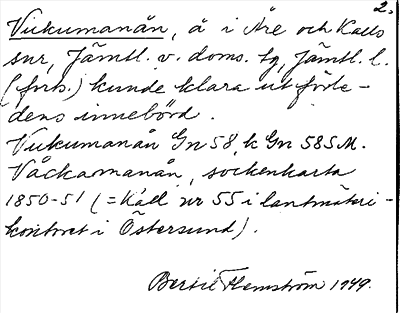 2.
Vukumanån, å i Åre och Kalls
snr, Jämtl. v. doms. tg, Jämtl. l.
(forts.) kunde klara ut förle-
dens innebörd.
Vukumanån Gn 58, k Gn 58 SM.
Våckamanån, sockenkarta
1850-51 (= Kall nr 55 i lantmäteri-
kontoret i Östersund).
Bertil Flemström 1949.